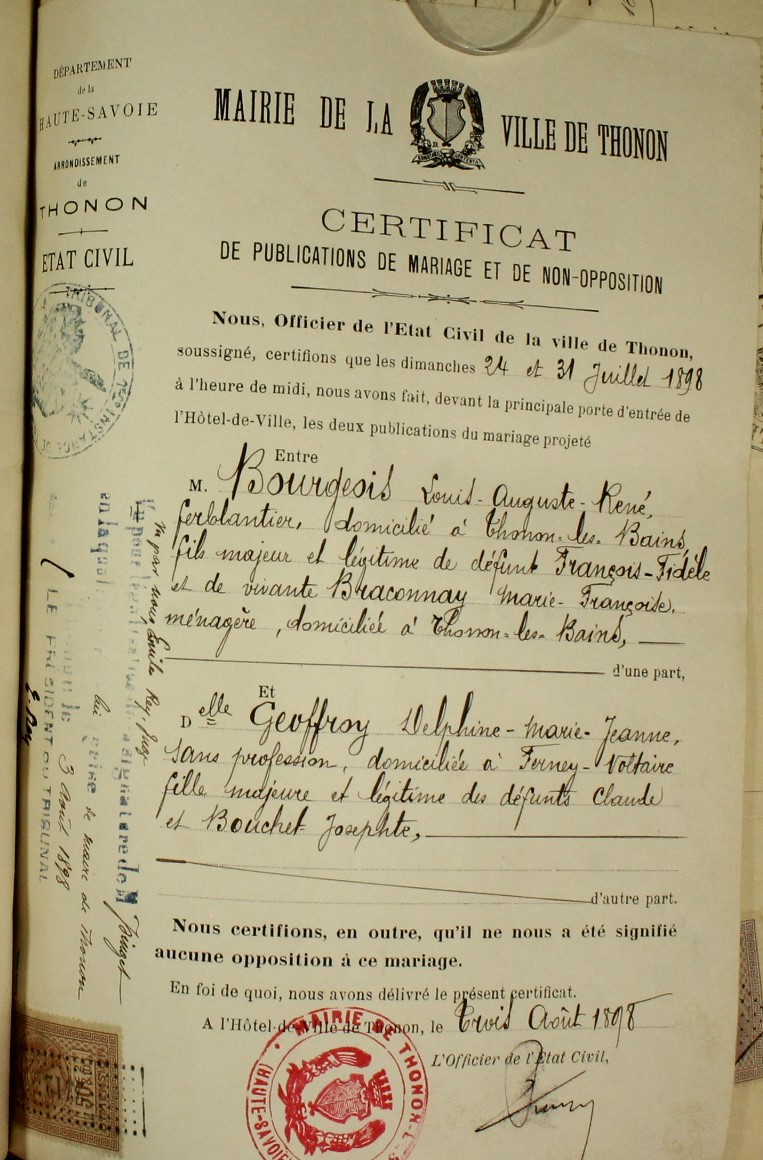 DÉPARTEMENT
de la
HAUTE-SAVOIE
ARRONDISSEMENT
de
THONON
ETAT CIVIL
MAIRIE DE LA VILLE DE THONON
CERTIFICAT
DE PUBLICATIONS DE MARIAGE ET DE NON-OPPOSITION
Nous, Officier de l'Etat Civil de la ville de Thonon,
soussigné, certifions que les dimanches 24 et 31 Juillet 1898
à l'heure de midi, nous avons fait, devant la principale porte d'entrée de
l'Hôtel-de-Ville, les deux publications du mariage projeté
Entre
M. Bourgeois Louis-Auguste-René,
ferblantier, domicilié à Thonon-les-Bains,
fils majeur et légitime de défunt François-Fidèle
et de vivante Braconnay Marie-Françoise,
ménagère, domiciliée à Thonon-les-Bains,
d'une part,
Et
Delle Geoffroy Delphine-Marie-Jeanne,
sans profession, domiciliée à Ferney-Voltaire
fille majeure et légitime des défunts Claude
et Bouchet Josephte,
d'autre part.
Nous certifions, en outre, qu'il ne nous a été signifié
aucune opposition à ce mariage.
En foi de quoi, nous avons délivré le présent certificat.
A l'Hôtel-de-Ville de Thonon, le Trois Août 1898
L'Officier de l'Etat Civil,
MAIRIE DE THONON-L
(HAUTE-SAVOIE
TRIBUNAL DE 1re INSTANCE
Vu par nous Emile Rey, Juge
signature de M
maire de Thonon
le 3 Août 1898
LE PRÉSIDENT DU TRIBUNAL
E. Rey